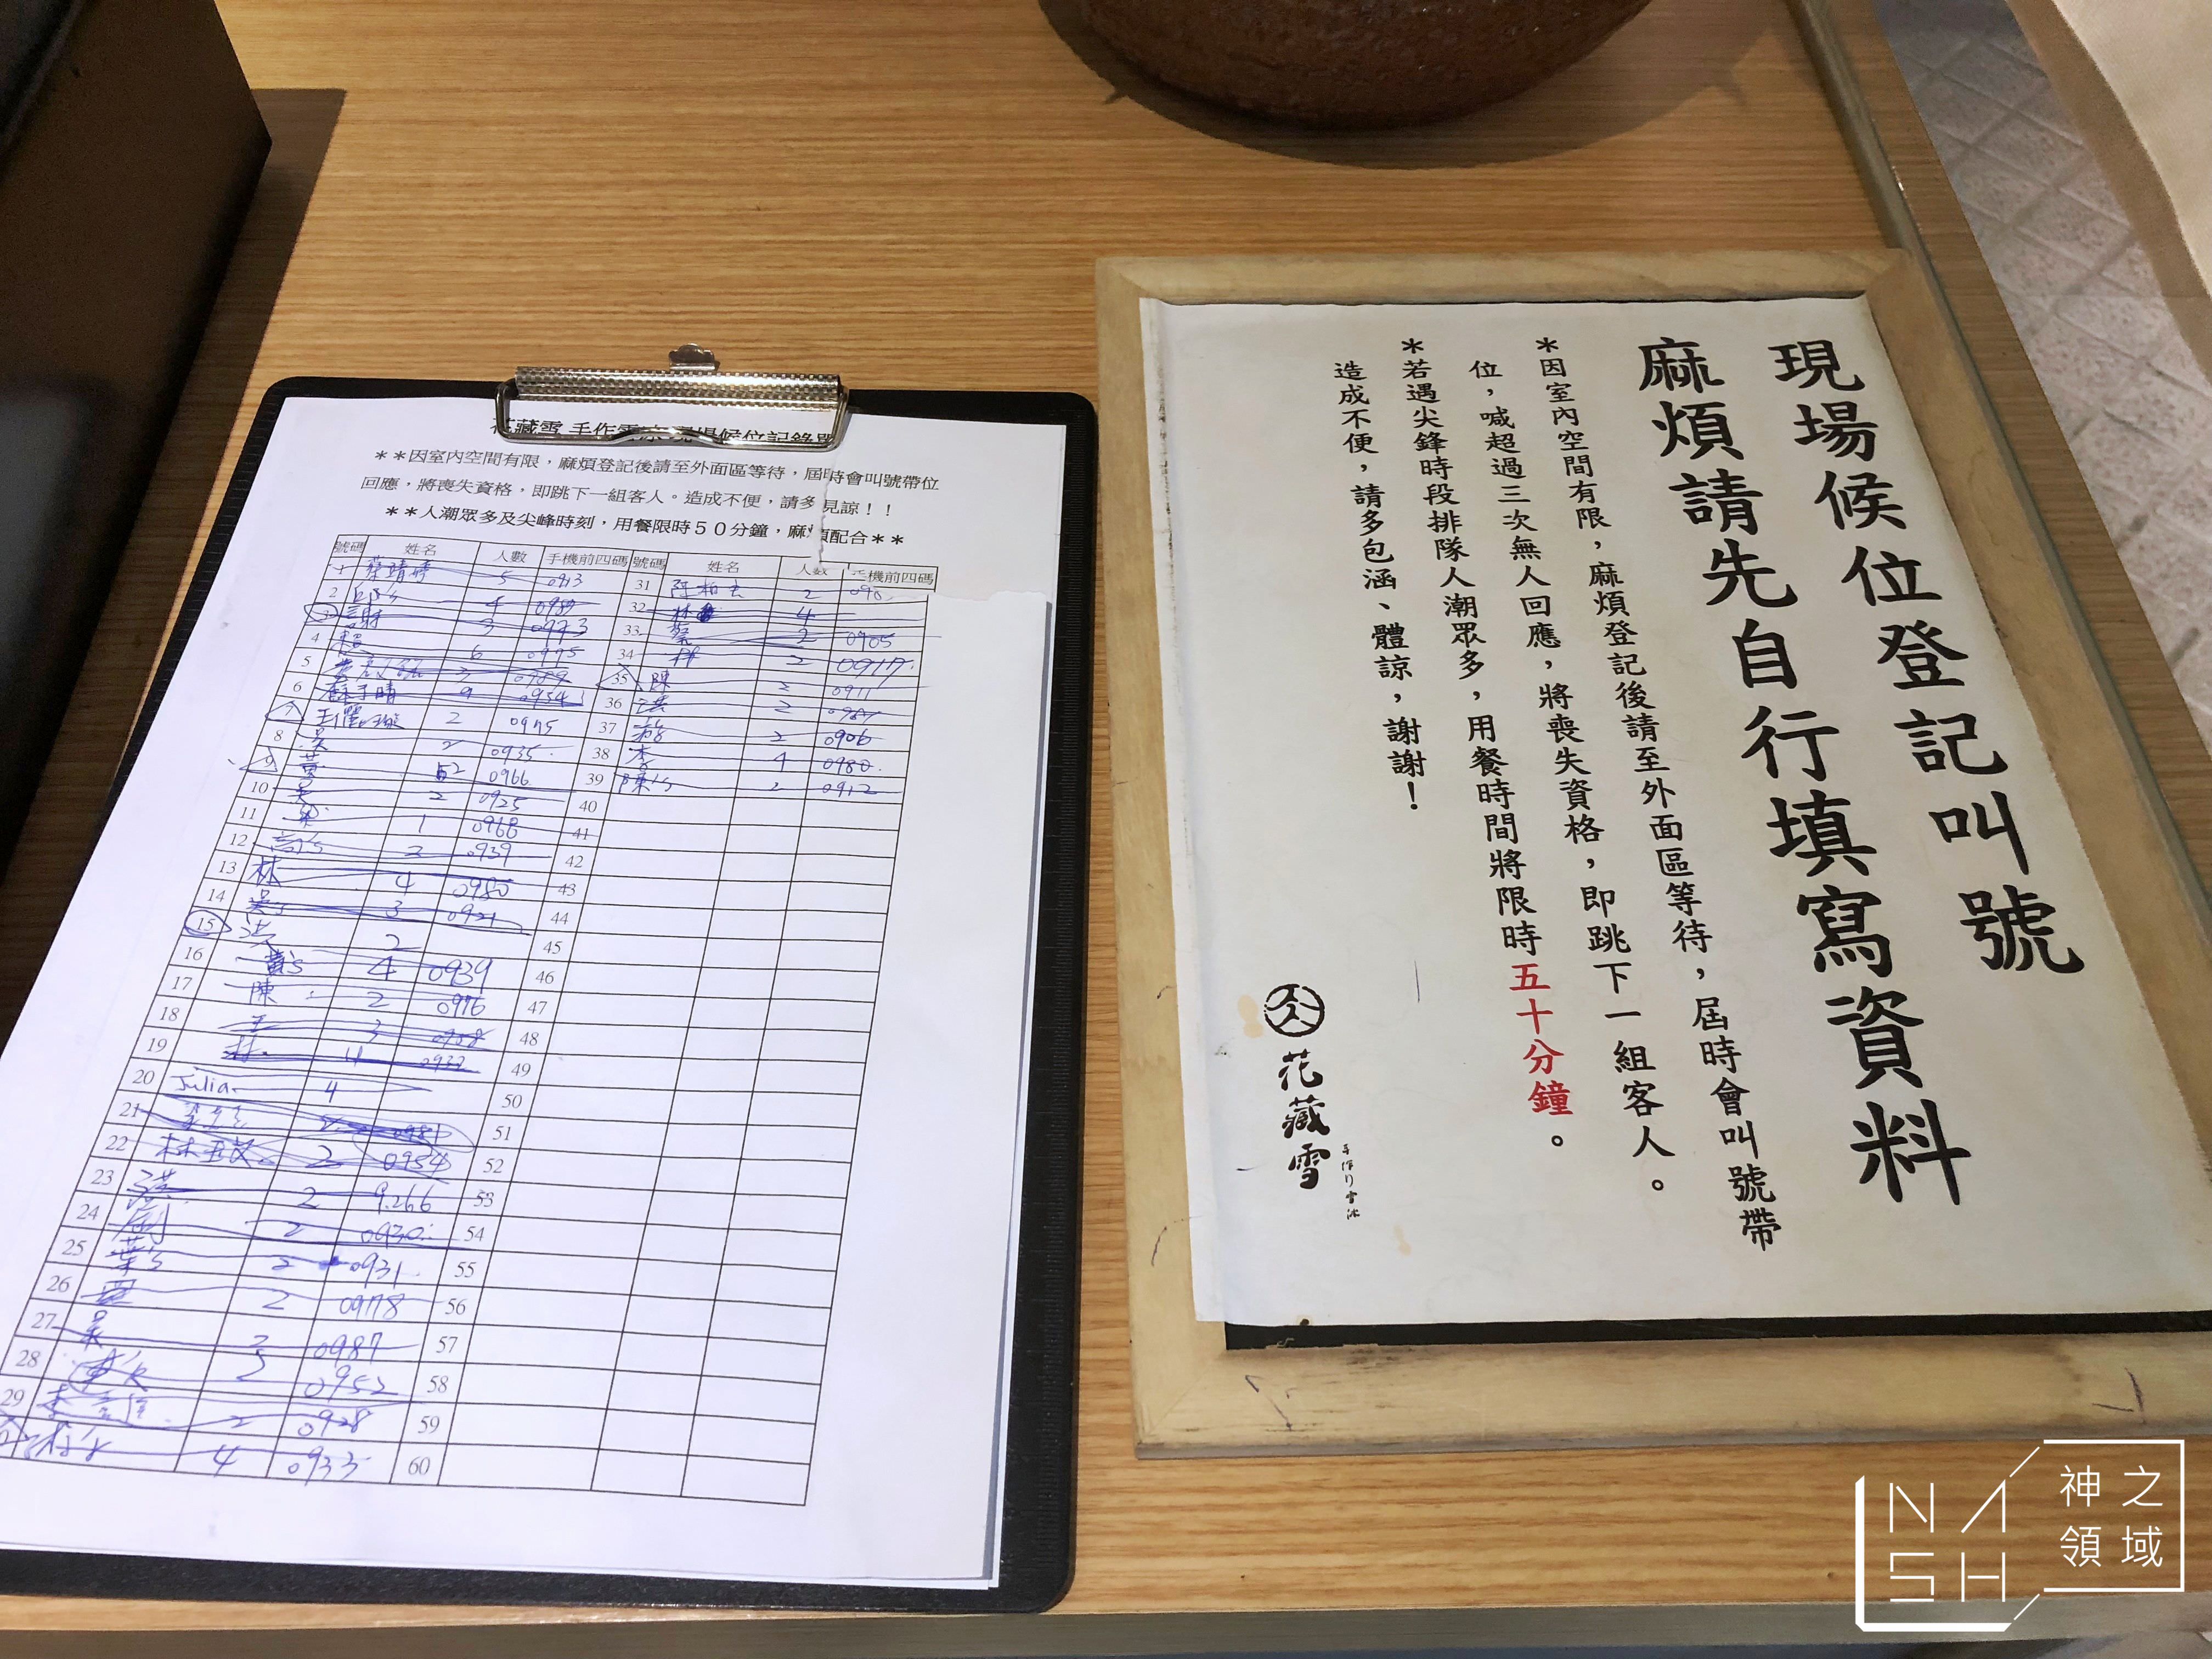 花藏雪 手作雪冰 現場候位記錄單
**因室內空間有限，麻煩登記後請至外面區等待，屆時會叫號帶位
回應，將喪失資格，即跳下一組客人。造成不便，請多見諒！！
**人潮眾多及尖峰時刻，用餐限時50分鐘，麻煩配合**
號碼 姓名 人數 手機前四碼 號碼 姓名 人數 手機前四碼
1 5 0913 31 2
2 4 0980 32 林 4
3 謝 3 0973 33 蔡 2 0905
4 6 0975 34 林 2 0917
5 3 0989 35 陳 2 0911
6 蘇子晴 9 0934 36 洪 2 0987
7 2 0975 37 2 0906
8 吳 2 0935 38 李 4 0980
9 黃 2 0966 39 陳's 2 0912
10 2 0925 40
11 1 0968 41
12 高's 2 0939 42
13 林 4 0980 43
14 吳 3 0921 44
15 洪 2 45
16 黃's 4 0939 46
17 陳 2 0976 47
18 王 3 48
19 林 4 0932 49
20 Julia 4 50
21 51
22 2 0954 52
23 洪 2 9266 53
24 劉 2 0930 54
25 葉's 2 0931 55
26 2 0978 56
27 吳 2 0987 57
28 2 0952 58
29 2 0928 59
4 0933 60
現場候位登記叫號
麻煩請先自行填寫資料
*因室內空間有限，麻煩登記後請至外面區等待，屆時會叫號帶
位，喊超過三次無人回應，將喪失資格，即跳下一組客人。
*若遇尖鋒時段排隊人潮眾多，用餐時間將限時五十分鐘。
造成不便，請多包涵、體諒，謝謝！
花藏雪
手作り雪冰
NASH
神之
領域